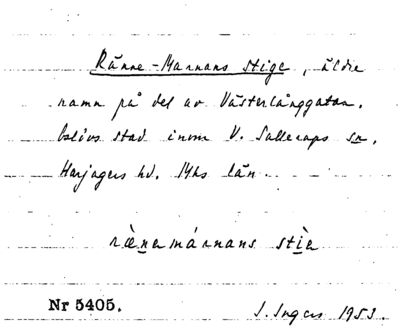 Ränne-Marnans stige, äldre
namn på del av Västerlånggatan.
Eslövs stad inom V. Sallerups sn,
Harjagers hd. Mhs län.
ræ̀nemárnans stìe
Nr 5405.
I. Ingers 1953.